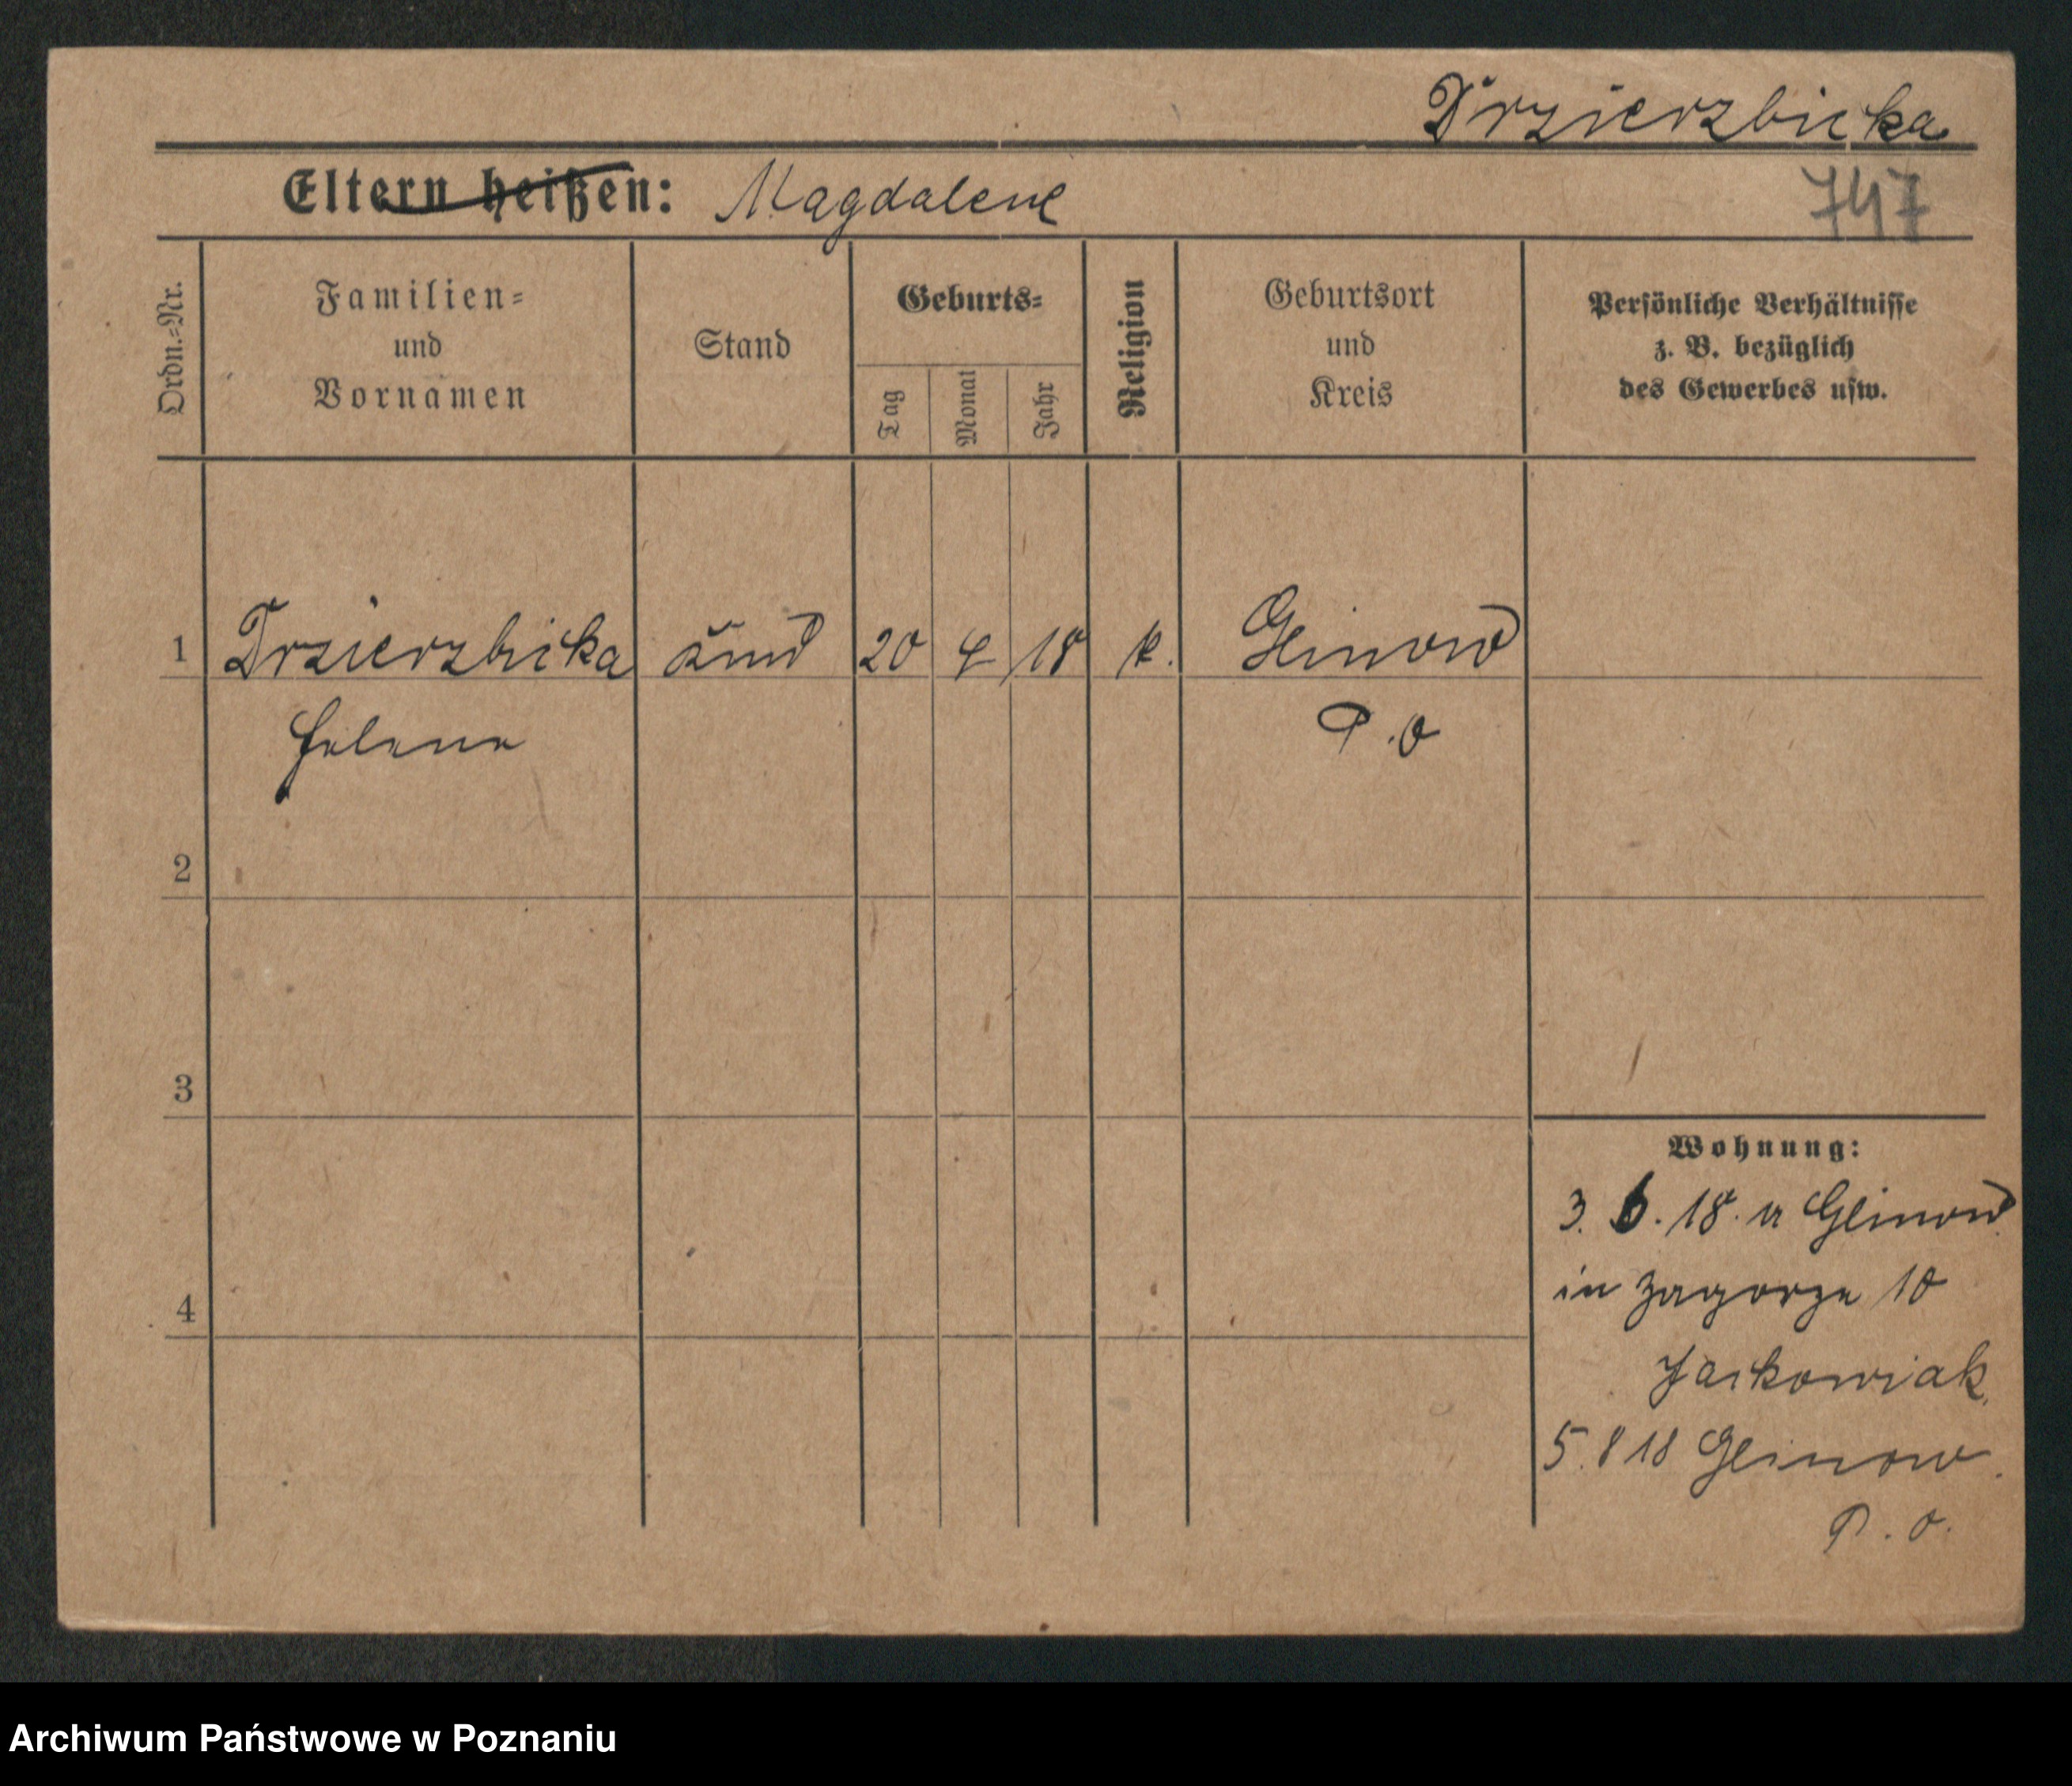 Drzierzbicka
Eltern heißen: Magdalene
747
Ordn.=Nr.
Familien=
und
Vornamen
Stand
Geburts=
Tag
Monat
Jahr
Religion
Geburtsort
und
Kreis
Persönliche Verhältnisse
z. B. bezüglich
des Gewerbes usw.
1 Drzierzbicka Kind 20 4 18 k. Glinow
Helene P.O
2
3
4
Wohnung:
3. 6. 18. v Glinow
in Zagorze 10
Jackowiak
5. 8 18 Glinow
P. O.
Archiwum Państwowe w Poznaniu